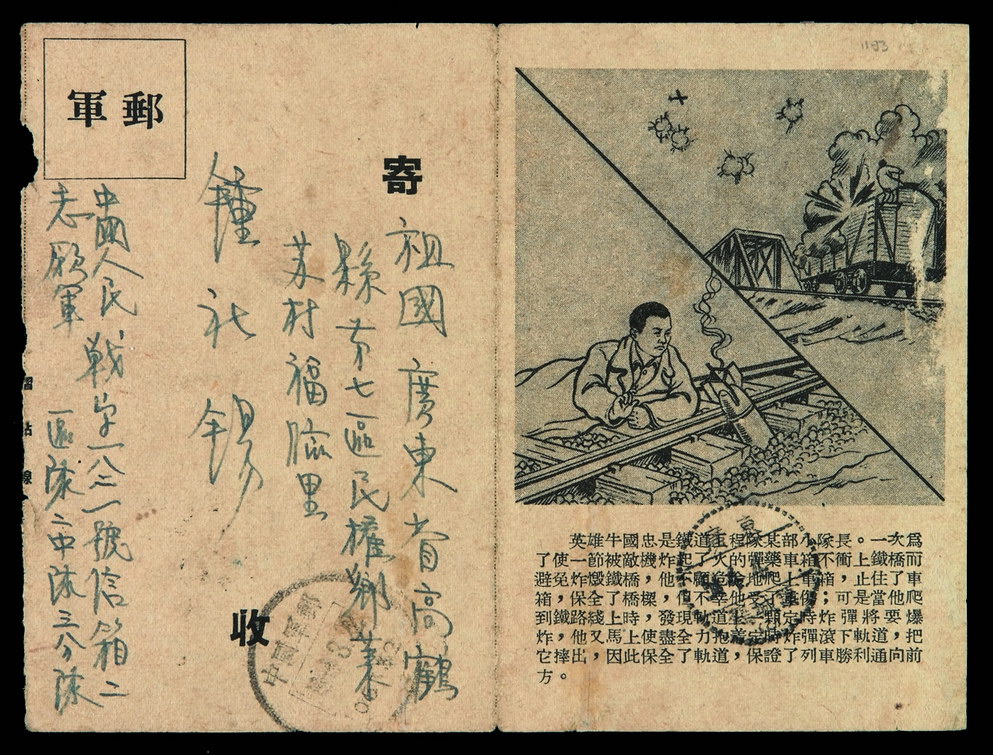 軍郵
寄
祖國廣東省高鶴
縣第七區民權鄉
村福臨里
鍾社錫
收
中國人民
志願軍
戰字一八二一號信箱二
中國軍郵
英雄牛國忠是鐵道工程隊某部小隊長。一次爲
了使一節被敵機炸起了火的彈藥車箱不衝上鐵橋而
避免炸燬鐵橋，他不顧危險地爬上車箱，止住了車
箱，保全了橋樑，但不幸他受了重傷；可是當他爬
到鐵路綫上時，發現軌道上一顆定時炸彈將要爆
炸，他又馬上使盡全力抱着定時炸彈滾下軌道，把
它摔出，因此保全了軌道，保證了列車勝利通向前
方。